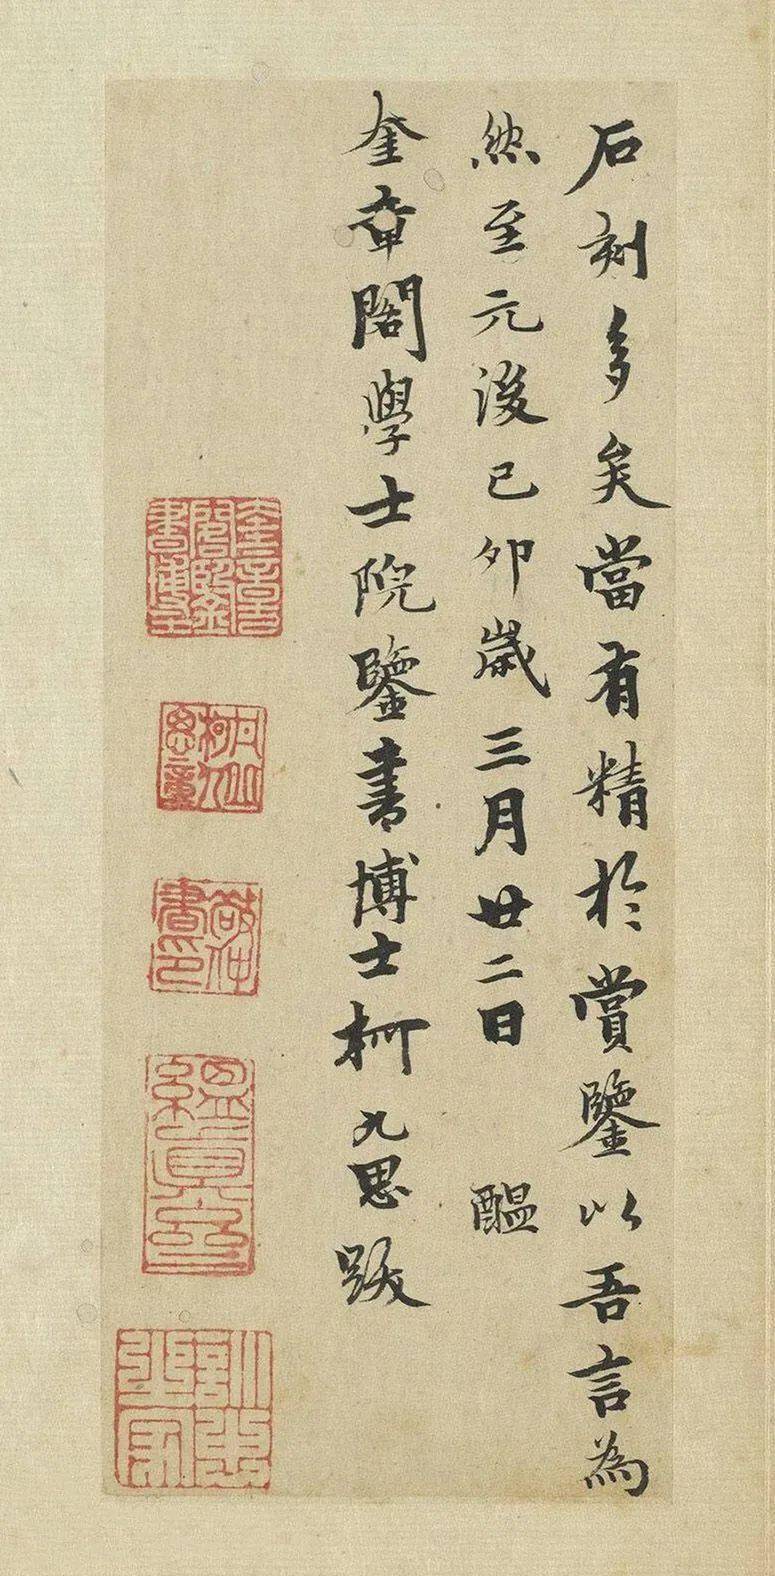 石刻多矣當有精於賞鑒以吾言為
然至元後己卯歲三月廿二日 醖
奎章閣學士院鑒書博士柯九思跋
奎章
閣鑒
書博士
敬仲
書印
縕真齋
訓忠
之家